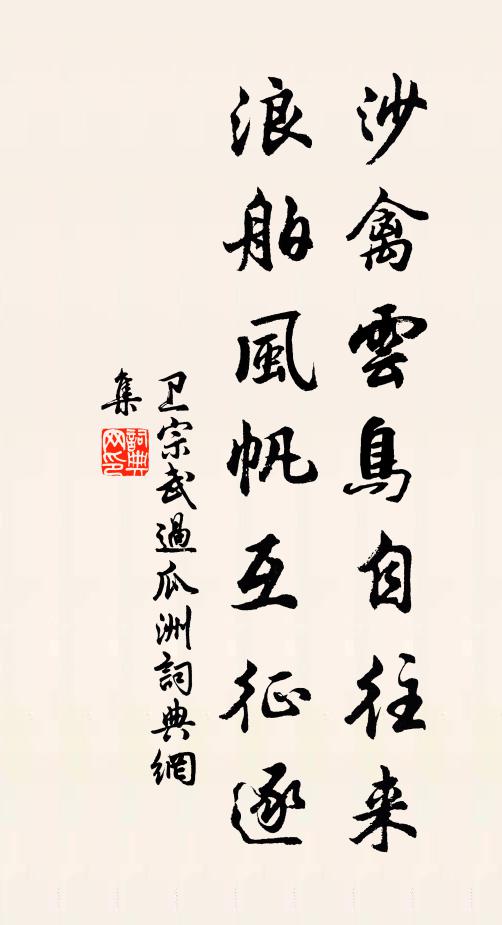 沙禽雲鳥自往来
浪舶風帆互征逐
卫宗武過瓜洲詞典網
集
詞典
网印